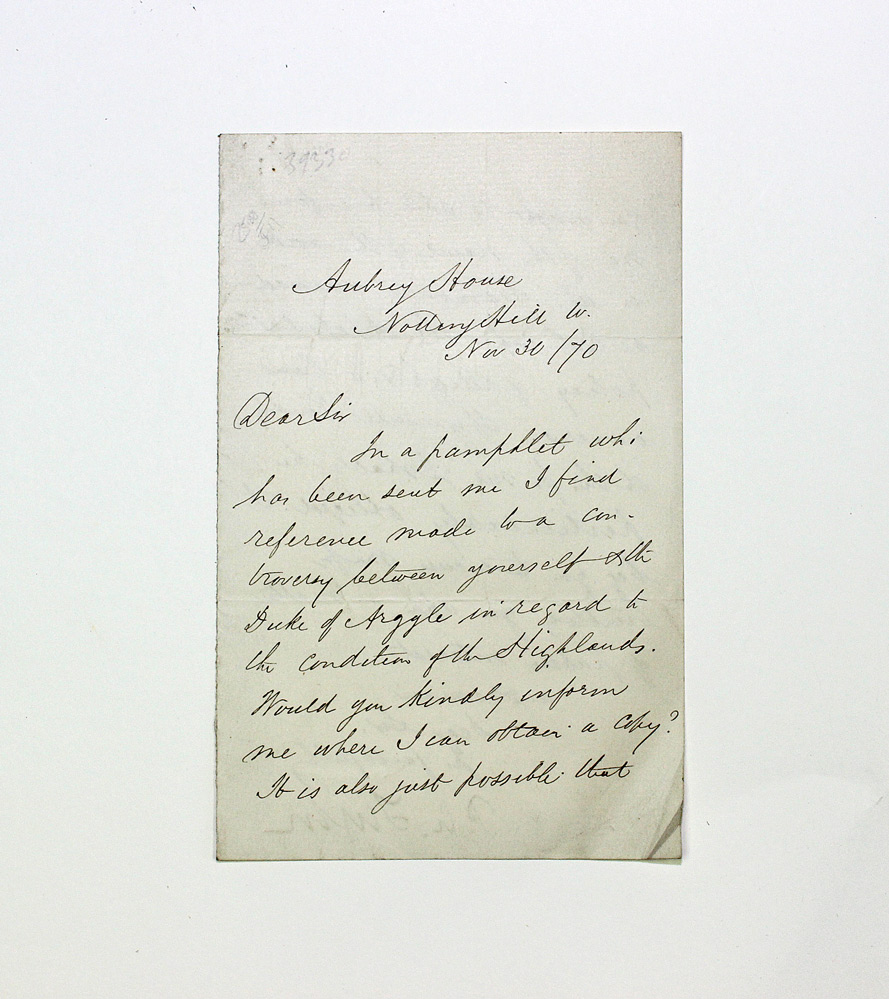 39330
Aubrey House
Notting Hill W.
Nov 30/70
Dear Sir
In a pamphlet whi
has been sent me I find
reference made to a con-
troversy between yourself & the
Duke of Argyle in regard to
the condition of the Highlands.
Would you kindly inform
me where I can obtain a copy?
It is also just possible that